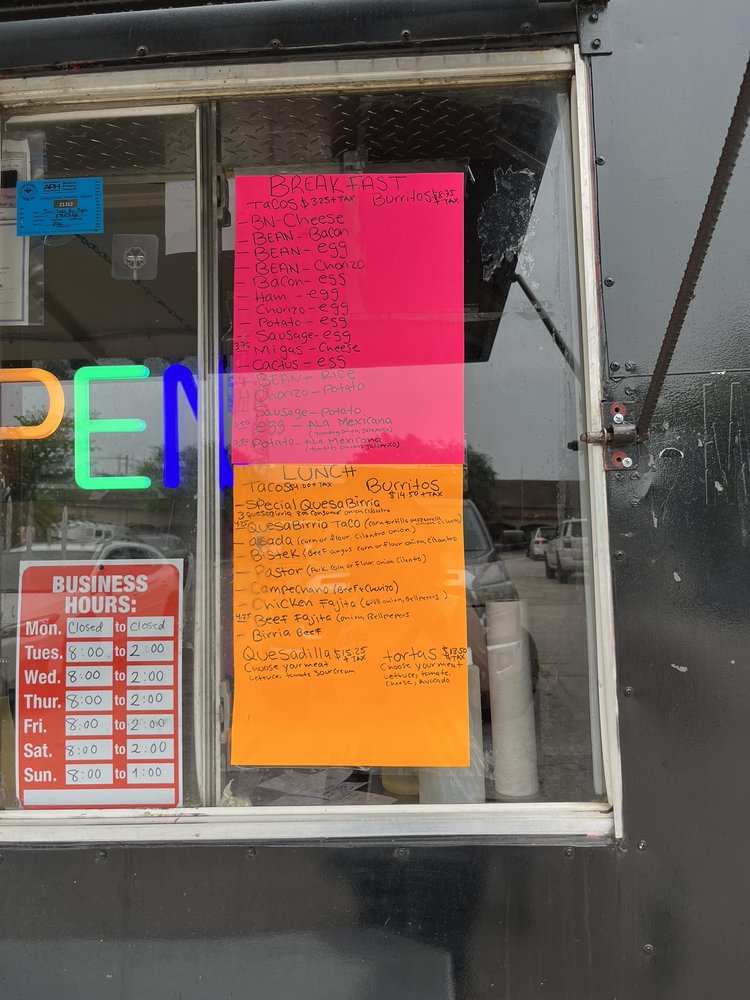 APH
21312
PEN
BREAKFAST
Tacos $3.25+TAX Burritos $8.75 +TAX
- BN-Cheese
- BEAN-Bacon
- BEAN-egg
- BEAN-Chorizo
- Bacon-egg
- Ham-egg
- Chorizo-egg
- Potato-egg
- Sausage-egg
3.75 Migas-Cheese
- Cactus-egg
- BEAN & RICE
- Chorizo-Potato
- Sausage-Potato
3.50 egg-ALA Mexicana
(tomato, onion, Jalapeño)
3.50 Potato-ALA Mexicana
(tomato, onion, Jalapeño)
LUNCH
Tacos 4.00+TAX Burritos
$14.50+TAX
- Special QuesaBirria
3 QuesaBirria Pos Consome onion Cilantro
4.75 QuesaBirria Taco (corn tortilla mozzarella onion, Cilantro)
- asada (corn or flour, Cilantro onion)
- Bistek (Beef angus corn or flour onion, Cilantro
- Pastor (Pork, corn or Flour onion, Cilantro)
- Campechano (Beef & Chorizo)
- Chicken Fajita (Grill onion, Bellpepers)
4.25 Beef Fajita (onion, Bellpepers
- Birria Beef
Quesadilla $15.25 +TAX
Choose your meat
Lettuce, tomate sour cream
tortas $13.50 +TAX
Choose your meat
Lettuce, tomate,
cheese, Avocado
BUSINESS
HOURS:
Mon. Closed to Closed
Tues. 8:00 to 2:00
Wed. 8:00 to 2:00
Thur. 8:00 to 2:00
Fri. 8:00 to 2:00
Sat. 8:00 to 2:00
Sun. 8:00 to 1:00